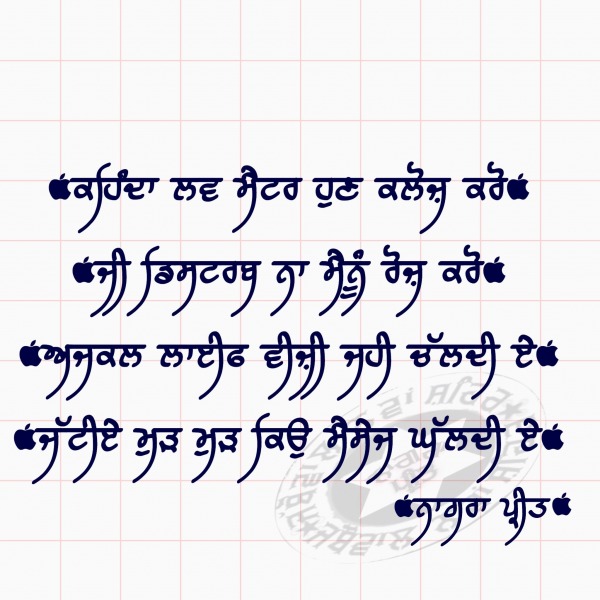 ਕਹਿੰਦਾ ਲਵ ਮੈਟਰ ਹੁਣ ਕਲੋਜ਼ ਕਰੋ
ਜੀ ਡਿਸਟਰਬ ਨਾ ਮੈਨੂੰ ਰੋਜ਼ ਕਰੋ
ਅਜਕਲ ਲਾਈਫ ਵੀਜ਼ੀ ਜਹੀ ਚੱਲਦੀ ਏ
ਜੱਟੀਏ ਮੁੜ ਮੁੜ ਕਿਉ ਮੈਸੇਜ ਘੱਲਦੀ ਏ
ਨਾਗਰਾ ਪ੍ਰੀਤ